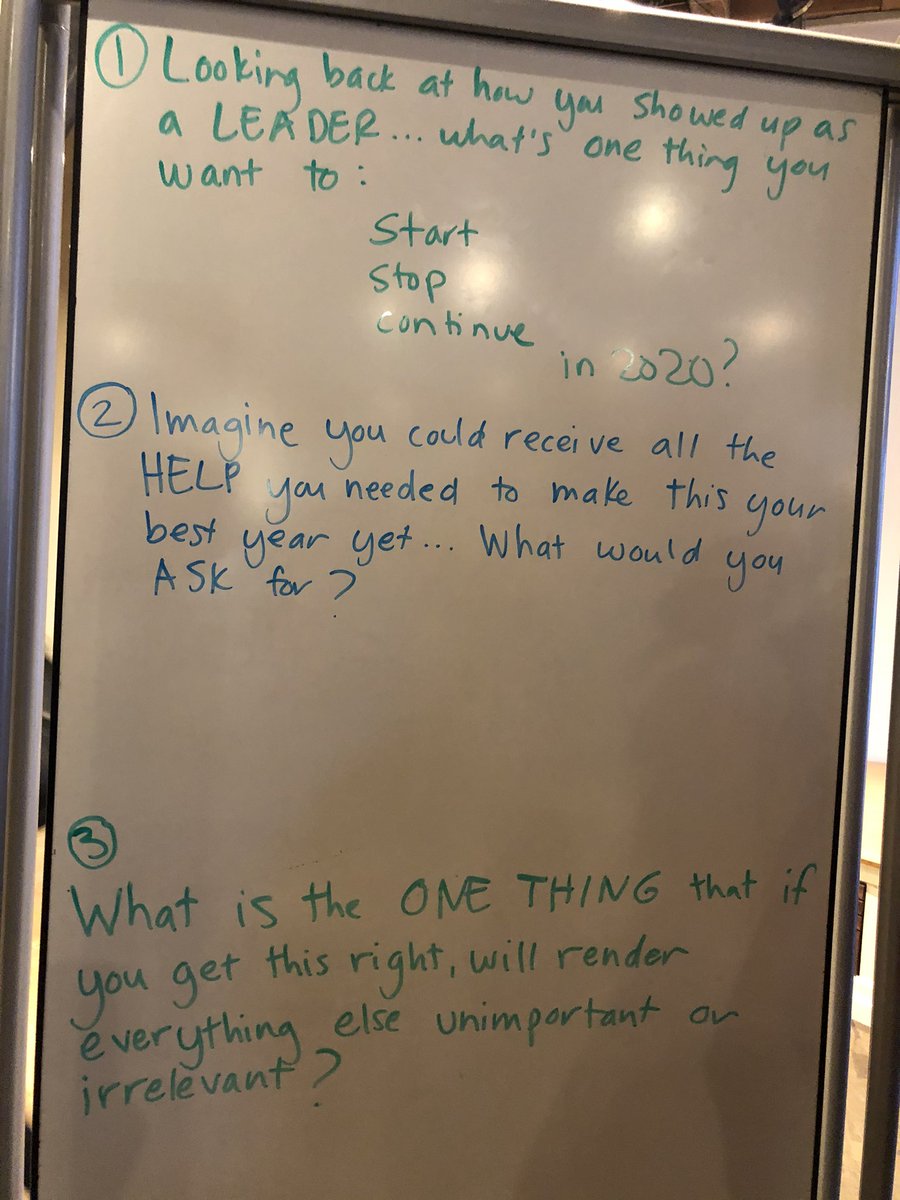 ① Looking back at how you showed up as
a LEADER... what's one thing you
want to:
Start
Stop
continue
in 2020?
② Imagine you could receive all the
HELP you needed to make this your
best year yet... What would you
ASK for?
③
What is the ONE THING that if
you get this right, will render
everything else unimportant or
irrelevant?